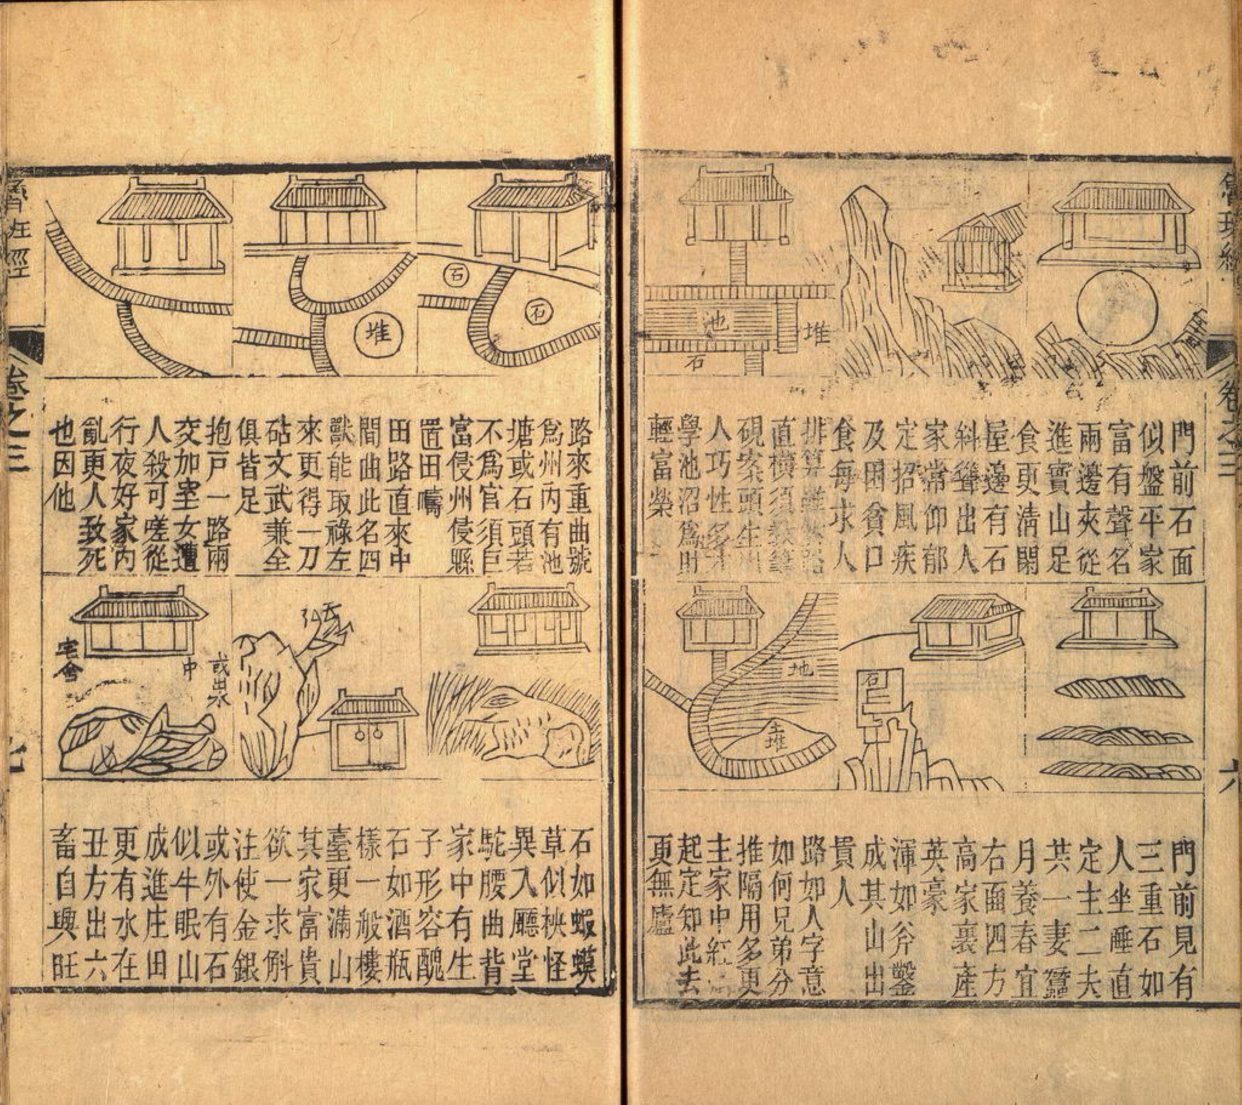 魯班經
卷之三
六
石
堆
池
門前石面
似盤平家
富有聲名
兩邊夾從
進寶山足
食更清閑
屋邊有石
斜聳出人
家常仰郁
定招風疾
及困貧口
食每求人
排算
直橫須教筆
硯案頭生
人巧性多才
學池沼為財
輕富榮
石
地
土堆
門前見有
三重石如
人坐睡直
定主二夫
共一妻蠶
月養春宜
右面四方
高家裏產
英豪
渾如斧鑿
成其山出
貫人
路如人字意
如何兄弟分
推隔用多更
主家中紅
起定知此去
更無廬
石
石
堆
路來重曲號
為州內有池
塘或石頭若
不為官須巨
富侵州侵縣
置田疇
田路直來中
間曲此名四
獸能取祿左
來更得一刀
砧文武兼全
俱皆足
抱戶一路兩
交加室女遭
人殺可嗟從
行夜好家內
亂更人致死
也因他
或出水
中
宅舍
石如蝦蟆
草似秧怪
異入廳堂
駝腰曲背
家中有生
子形容醜
石如酒瓶
樣一般樓
臺更滿山
其家富貴
欲一求斛
注使金銀
或外有石
似牛眠山
成進庄田
更有水在
丑方出六
畜自興旺
魯班經
卷之三
七